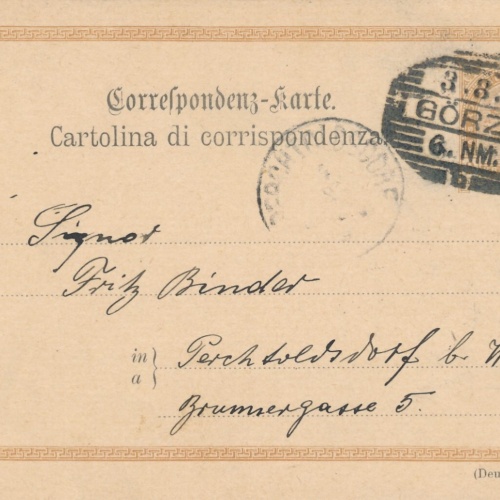 Correſpondenz-Karte.
Cartolina di corrispondenza.
3.8.
GÖRZ
6. NM.
Signor
Fritz Binder
in
a
Perchtoldsdorf b. W
Brunnergasse 5.
(Deu